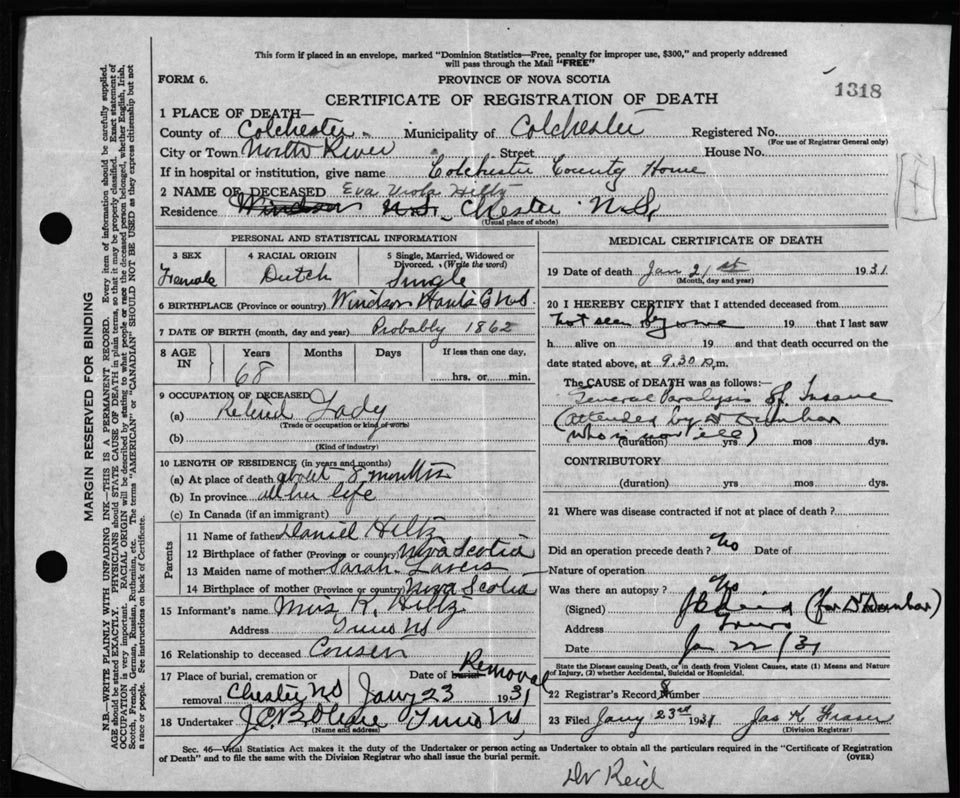 This form if placed in an envelope, marked "Dominion Statistics—Free, penalty for improper use, $300," and properly addressed
will pass through the Mail "FREE"
FORM 6.
PROVINCE OF NOVA SCOTIA
1318
CERTIFICATE OF REGISTRATION OF DEATH
1 PLACE OF DEATH—
County of Colchester
Municipality of Colchester
Registered No.
(For use of Registrar General only)
City or Town North River
Street
House No.
If in hospital or institution, give name Colchester County Home
2 NAME OF DECEASED Eva Viola Hiltz
Residence Windsor N.S. Chester N.S.
(Usual place of abode)
PERSONAL AND STATISTICAL INFORMATION
3 SEX
Female
4 RACIAL ORIGIN
Dutch
5 Single, Married, Widowed or
Divorced. (Write the word)
Single
6 BIRTHPLACE (Province or country) Windsor Hants Co N.S.
7 DATE OF BIRTH (month, day and year) Probably 1862
8 AGE IN
Years
Months
Days
If less than one day,
68
hrs. or min.
9 OCCUPATION OF DECEASED
(a) Retired Lady
(Trade or occupation or kind of work)
(b)
(Kind of industry)
10 LENGTH OF RESIDENCE (in years and months)
(a) At place of death about 8 months
(b) In province all her life
(c) In Canada (if an immigrant)
Parents
11 Name of father Daniel Hiltz
12 Birthplace of father (Province or country) Nova Scotia
13 Maiden name of mother Sarah
14 Birthplace of mother (Province or country) Nova Scotia
15 Informant's name Mrs R. Hiltz
Address Truro NS
16 Relationship to deceased Cousen
17 Place of burial, cremation or
removal Chester NS
Date of burial Removal
Jany 23 1931
18 Undertaker Truro NS,
(Name and address)
MEDICAL CERTIFICATE OF DEATH
19 Date of death Jan 21st 1931
(Month, day and year)
20 I HEREBY CERTIFY that I attended deceased from
not seen by me 19 that I last saw
h alive on 19 and that death occurred on the
date stated above, at 9.30 m.
The CAUSE OF DEATH was as follows:—
General Paralysis of Insane
(Attended by Dr Dunbar
who is now ill)
(duration) yrs mos dys.
CONTRIBUTORY
(duration) yrs. mos. dys.
21 Where was disease contracted if not at place of death?
Did an operation precede death? No Date of
Nature of operation
Was there an autopsy? No
(Signed) Reid (for Dr Dunbar)
Address Truro
Date Jan 22/31
State the Disease causing Death, or in death from Violent Causes, state (1) Means and Nature
of Injury, (2) whether Accidental, Suicidal or Homicidal.
22 Registrar's Record Number 8
23 Filed Jany 23rd 1931 Jas K Fraser
(Division Registrar)
Sec. 46—Vital Statistics Act makes it the duty of the Undertaker or person acting as Undertaker to obtain all the particulars required in the "Certificate of Registration
of Death" and to file the same with the Division Registrar who shall issue the burial permit.
(OVER)
Dr Reid
MARGIN RESERVED FOR BINDING
N.B.—WRITE PLAINLY WITH UNFADING INK—THIS IS A PERMANENT RECORD. Every item of information should be carefully supplied.
AGE should be stated EXACTLY. PHYSICIANS should STATE CAUSE OF DEATH in plain terms, so that it may be properly classified. Exact statement of
OCCUPATION is very important. RACIAL ORIGIN will be described by stating to what people or race the deceased person belonged, whether English, Irish,
Scotch, French, German, Russian, Ruthenian, etc. The terms "AMERICAN" or "CANADIAN" SHOULD NOT BE USED as they express citizenship but not
a race or people. See instructions on back of Certificate.